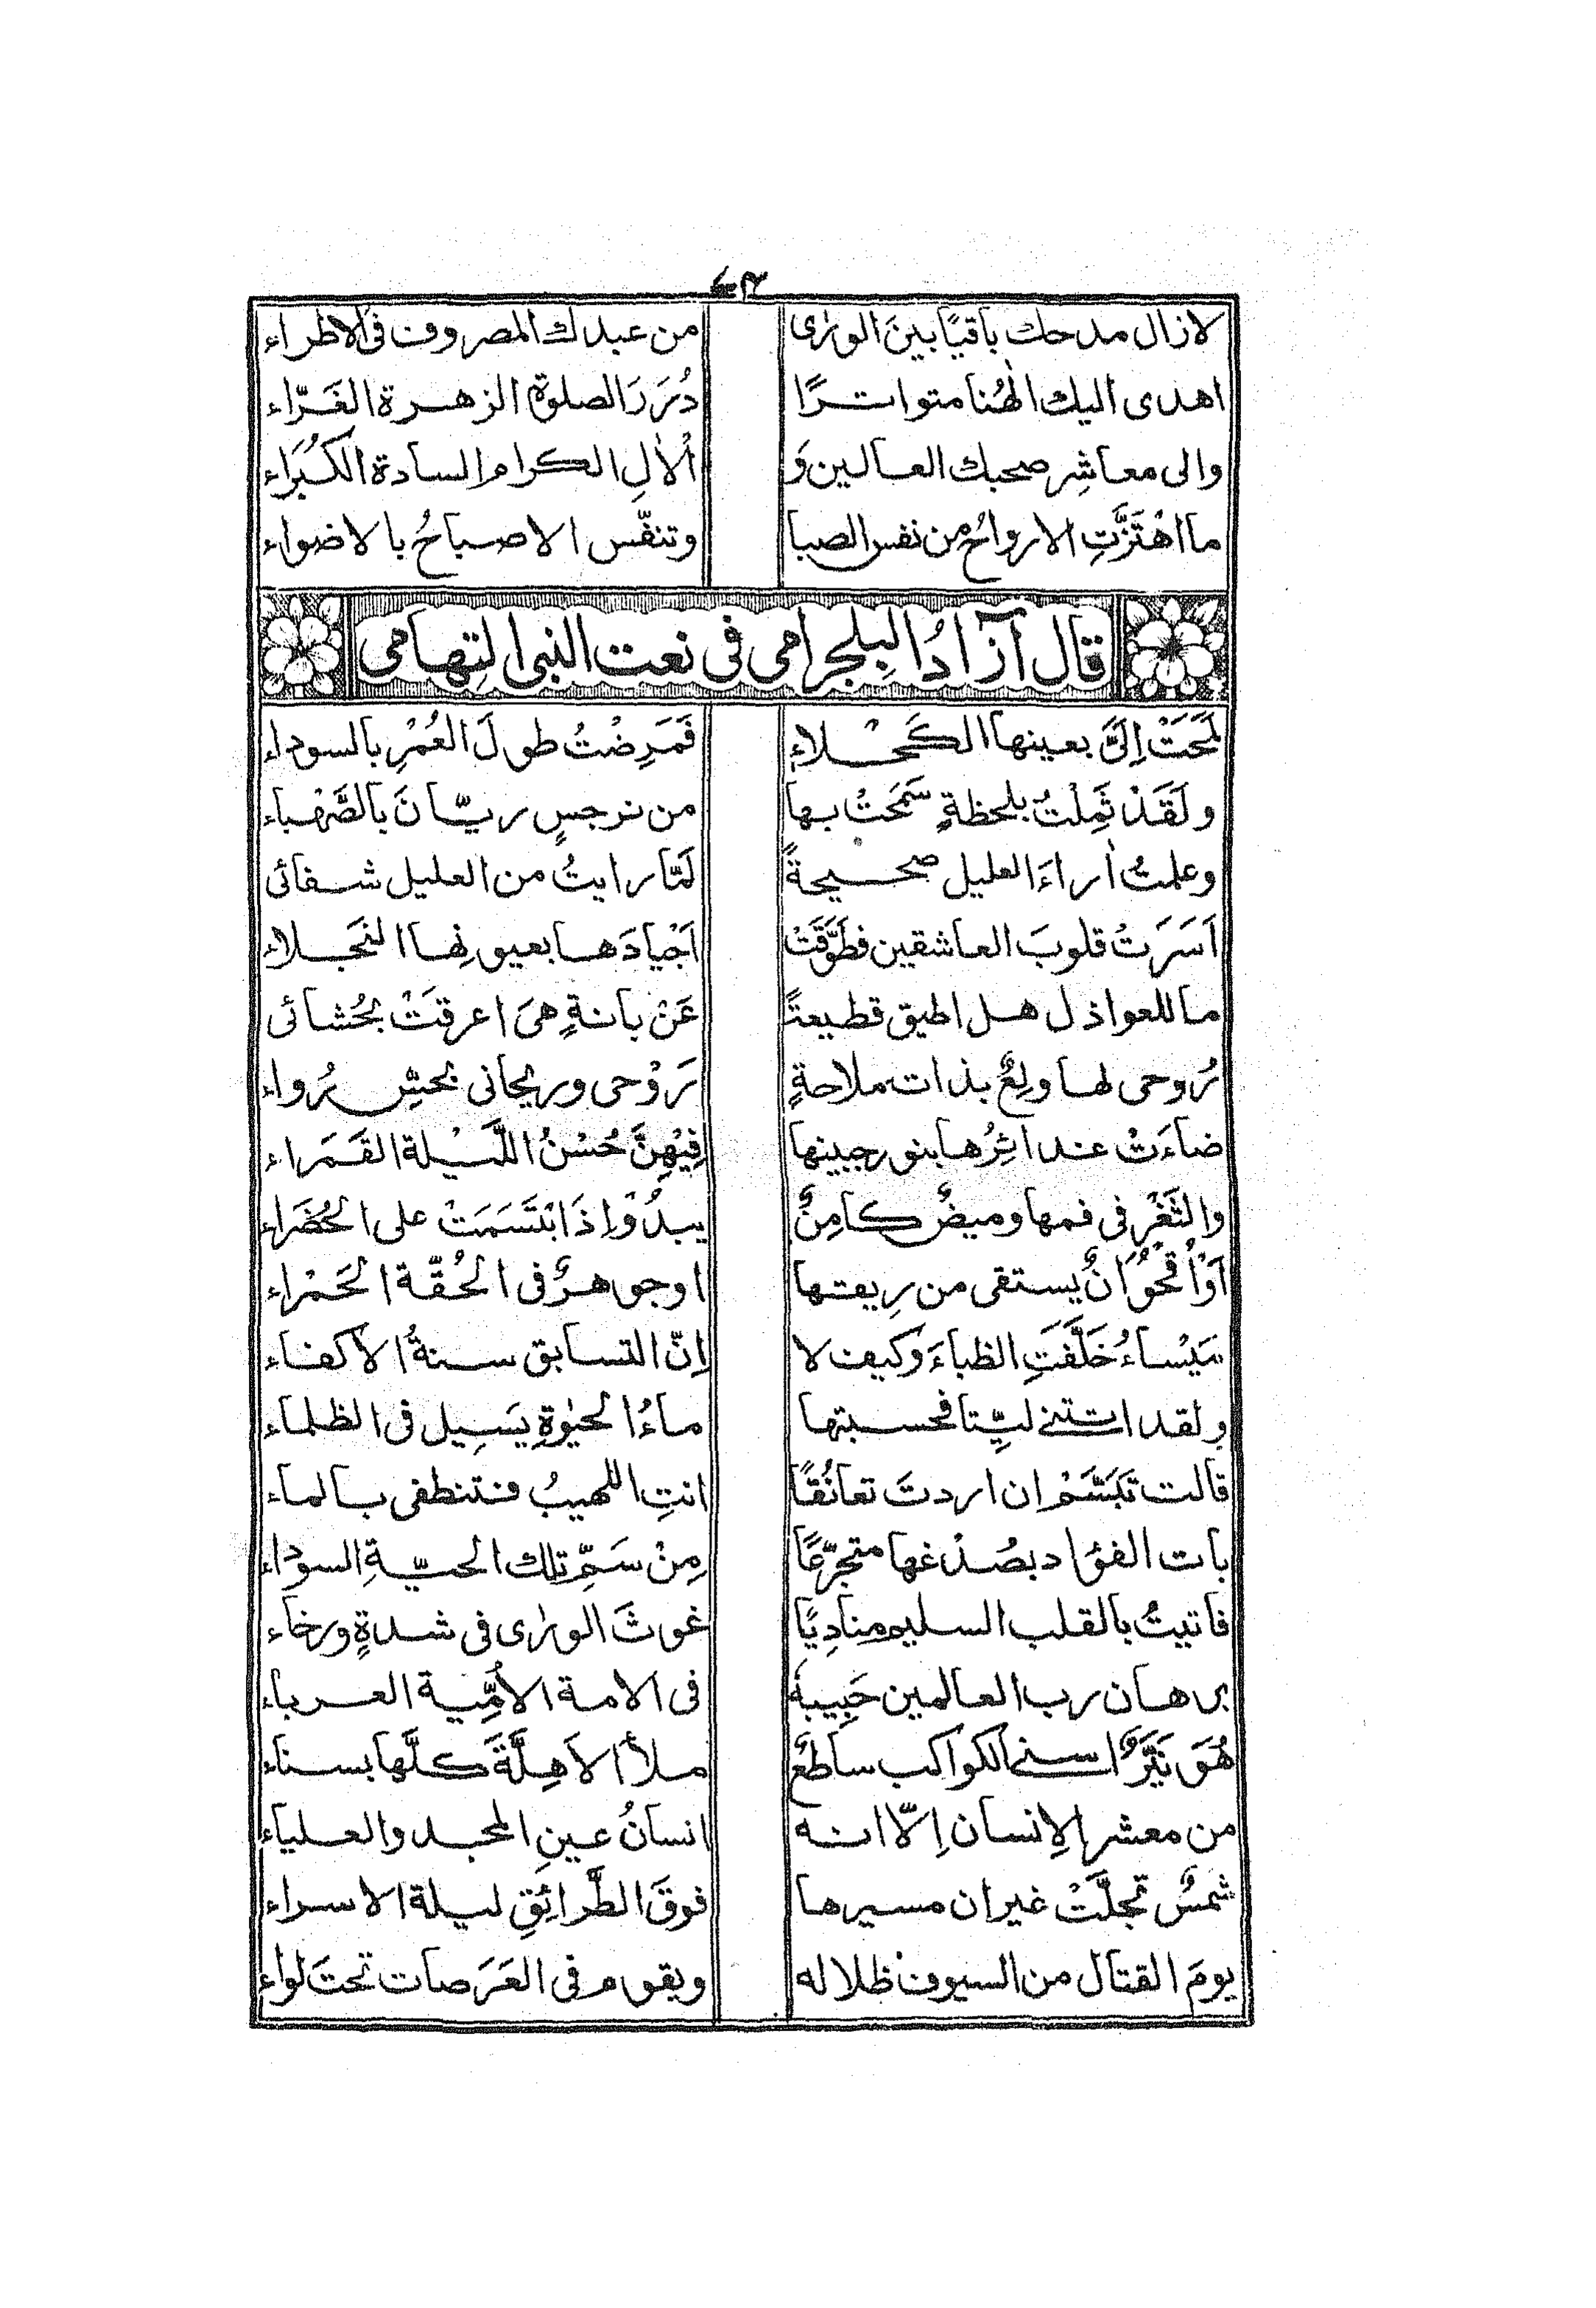 لازال مدحك باقيًا بينَ الورٰى من عبدك المصروف فى الاطراء
اهدى اليك الٰهُنا متواترًا دُرَرَ الصلوة الزهرة الغَرّاء
والى معاشِرِ صحبك العالين وَ اْلاٰلِ الكرام السادة الكُبَراء
ما اهْتَزَّتِ الارواحُ من نفس الصبا وتنفّس الاصباحُ بالاضواء
قال آزادُ البِلجرامى فى نعت النبى التِهامى
لَمَحَتْ اِلىَّ بعينها الكَحْلاءِ فَمَرِضْتُ طولَ العُمْرِ بالسوداء
ولَقَدْ ثَمِلْتُ بلحظةٍ سَمَحَتْ بها من نرجسٍ ريّانَ بالصَّهْباء
وعلمتُ اٰراءَ العليل صحيحةً لَمّا رايتُ من العليل شفائى
اَسَرَتْ قلوبَ العاشقين فطَوَّقَتْ اَجْيادَها بعيونِها النَجلاء
ما للعواذل هل اطيق قطيعةً عَنْ بانةٍ هىَ اعرقَتْ بحُشائى
رُوحى لها ولِعٌ بذات ملاحةٍ رَوْحى وريحانى بحسْنِ رُواء
ضاءَتْ غدائِرُها بنور جبينها فِيْهِنَّ حُسْنُ اللَّيْلة القَمَراء
والثَغْر فى فمها وميضٌ كامِنٌ يبدُوْ اِذَا ابْتَسَمَتْ على الخُضَراء
اَوْ اُقْحُوَانٌ يستقى من رِيقتها اوجوهرٌ فى الحُقّة الحَمْراء
مَيْساءُ خَلَّفَتِ الظباءَ وكيف لا اِنّ التسابق سنةُ الاكفاء
ولقد اتتنى ليِّتا فحسبتها ماءُ الحيٰوةِ يَسِيل فى الظلماء
قالت تَبَسَّمْ ان اردتَ تعانُقًا انتِ اللهيبُ فتنطفى بالماء
بات الفؤاد بصُدْغها متجرّعًا مِنْ سَمِّ تلك الحيّةِ السوداء
فاتيتُ بالقلب السليم منادِيًا غوثَ الورٰى فى شدةٍ ورخاء
برهان رب العالمين حَبِيبهُ فى الامة الاُمِّية العرباء
هُوَ نَيِّرٌ اسنى الكواكب ساطعٌ ملأ الاَهِلَّةَ كلَّها بسناء
من معشر الاِنسان اِلّا انه انسانُ عينِ المجد والعلياء
شمسٌ تجلَّتْ غيران مسيرها فوقَ الطَّرائِقِ ليلة الاسراء
يومَ القتال من السيوف ظلاله ويقوم فى العَرَصات تحتَ لواءِ